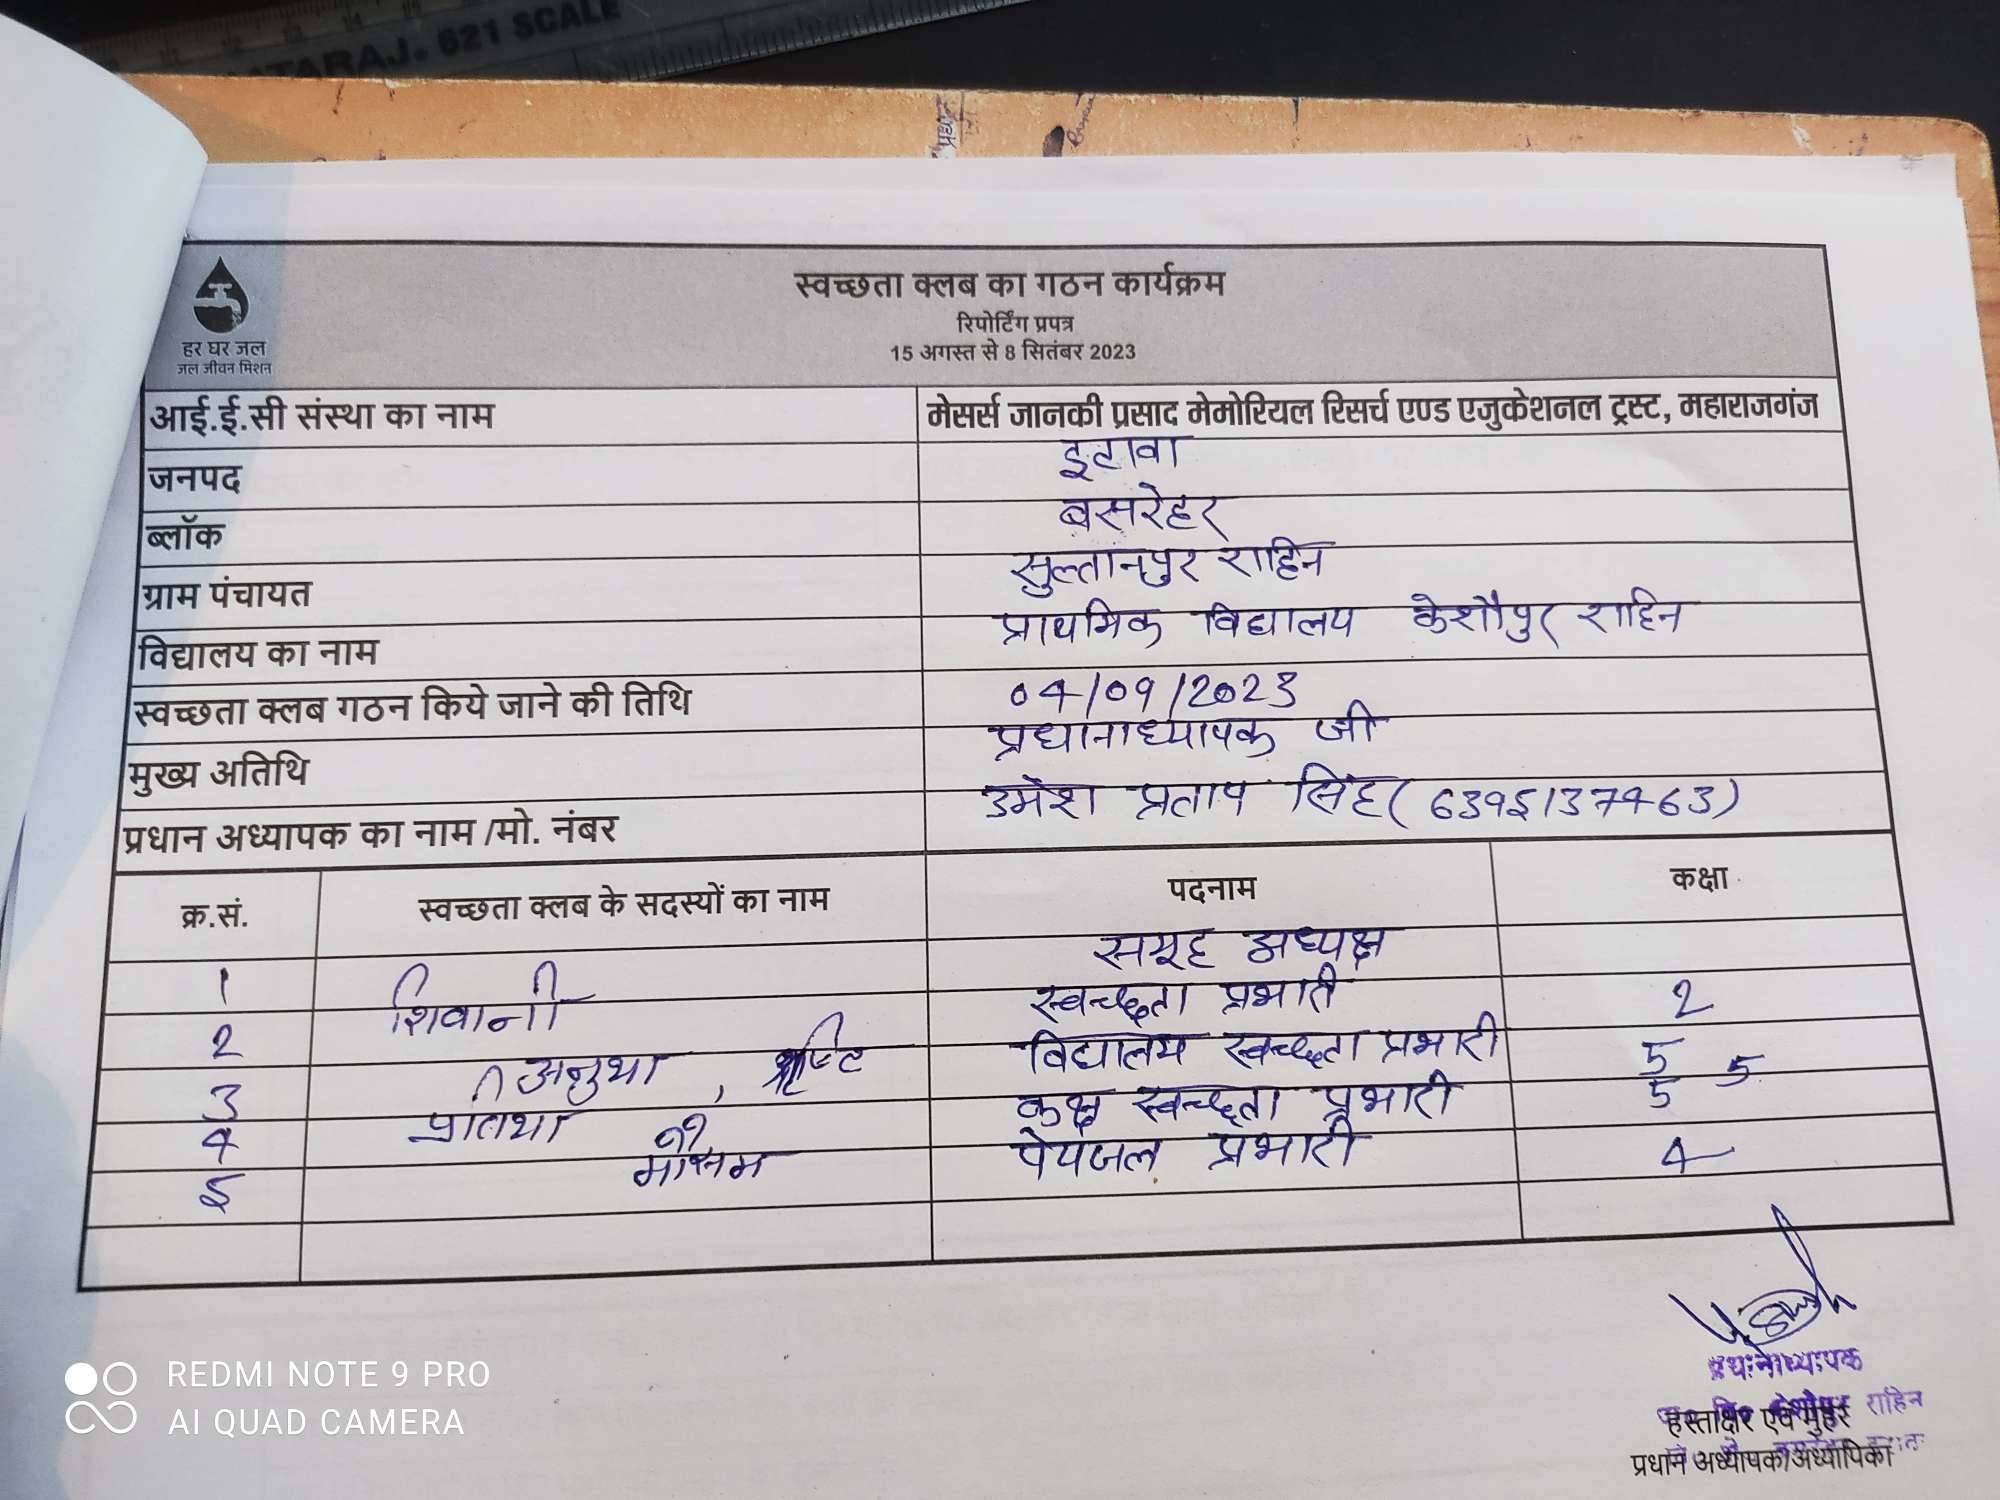 ATARAJ. 621 SCALE
स्वच्छता क्लब का गठन कार्यक्रम
रिपोर्टिंग प्रपत्र
15 अगस्त से 8 सितंबर 2023
हर घर जल
जल जीवन मिशन
आई.ई.सी संस्था का नाम मेसर्स जानकी प्रसाद मेमोरियल रिसर्च एण्ड एजुकेशनल ट्रस्ट, महाराजगंज
जनपद इटावा
ब्लॉक बसरेहर
ग्राम पंचायत सुल्तानपुर राहिन
विद्यालय का नाम प्राथमिक विद्यालय केशौपुर राहिन
स्वच्छता क्लब गठन किये जाने की तिथि 04/09/2023
मुख्य अतिथि प्रधानाध्यापक जी
प्रधान अध्यापक का नाम /मो. नंबर उमेश प्रताप सिंह (6395137463)
क्र.सं. स्वच्छता क्लब के सदस्यों का नाम पदनाम कक्षा
1 समूह अध्यक्ष
2 शिवानी स्वच्छता प्रभारी 2
3 अनुभा , विद्यालय स्वच्छता प्रभारी 5 5
4 कक्ष स्वच्छता प्रभारी 5
5 मौसम पेयजल प्रभारी 4
प्रधानाध्यापक
राहिन
हस्ताक्षर एवं मुहर
प्रधान अध्यापक/अध्यापिका
REDMI NOTE 9 PRO
AI QUAD CAMERA